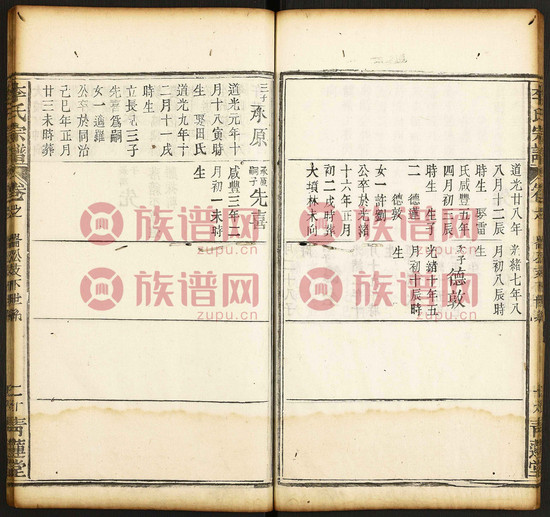 道光廿八年
八月十二辰
時生 娶雷
氏咸豐五年
四月初三辰
時生 生子
二 德蓮
德敦
女一 許鄧
公卒於光緒
十六年正月
初二戌時葬
大墳林未向
光緒七年八
月初八辰時
生
次子 德敦
光緒十年五
月初十辰時
生
李氏宗譜
卷之
青蓮堂
三子 永原
道光元年十
月十八寅時
生 娶田氏
道光九年十
二月十一戌
時生
立長兄三子
先喜為嗣
女一適羅
公卒於同治
己巳年正月
廿三未時葬
嗣子 先喜
咸豐三年二
月初一未時
生
李氏宗譜
青蓮堂
族谱网
zupu.cn
族谱网
zupu.cn
族谱网
zupu.cn
族谱网
zupu.cn